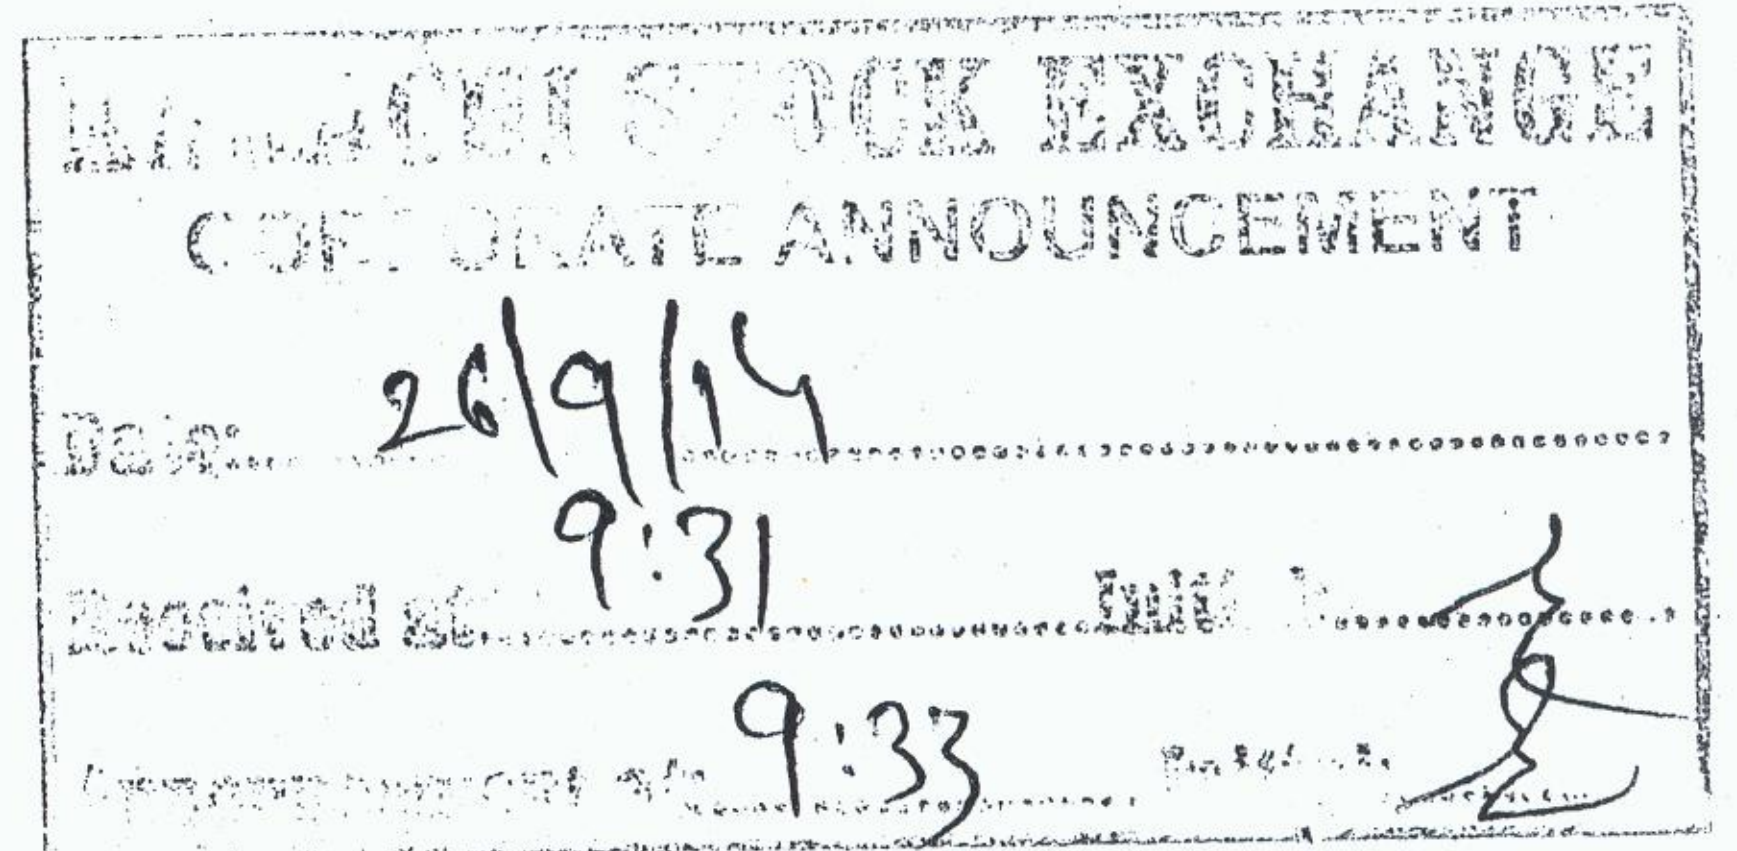 KARACHI STOCK EXCHANGE
CORPORATE ANNOUNCEMENT
Date: 26/9/14
Received at 9:31
9:33